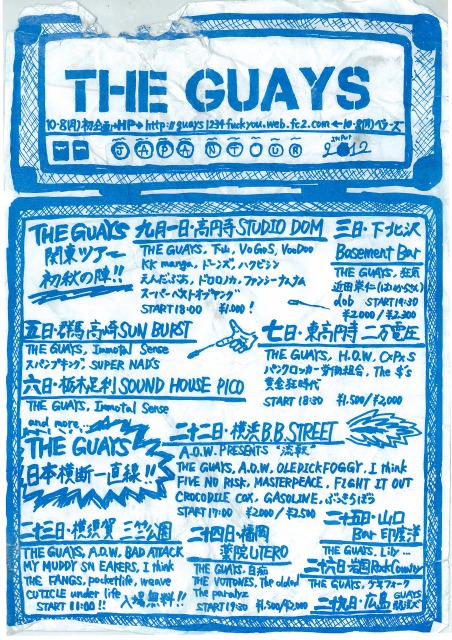 THE GUAYS
10-8(月)初企画→HP→http://guays1234fuckyou.web.fc2.com←10-8(月)ベアーズ
JAPAN TOUR
INPUT
2012
THE GUAYS
関東ツアー
初秋の陣!!
九月一日・高円寺 STUDIO DOM
THE GUAYS, 下山, VoGoS, VooDoo
KK manga, ドーンズ, ハクビシン
えんぶゑぶ, ドロロニカ, ファンシーナムナム
スーパーベストオブヤング
START 18:00 ¥1.000!
三日・下北沢
Basement Bar
THE GUAYS, 狂気
近田崇仁(はめ
dob START 19:30
¥2.000/¥2.300
五日・群馬高崎 SUN BURST
THE GUAYS, Immotal Sense
スパンプキング, SUPER NADS
六日・栃木足利 SOUND HOUSE PICO
THE GUAYS, Immotal Sense
and more...
七日・東高円寺 二万電圧
THE GUAYS, H.O.W, CxPxS
パンクロッカー労働組合, The $'s
黄金狂時代
START 18:30 ¥1.500/¥2.000
THE GUAYS
日本横断一直線!!
二十二日・横浜 B.B.STREET
A.O.W. PRESENTS
THE GUAYS, A.O.W, OLEDICKFOGGY, I think
FIVE NO RISK, MASTERPEACE, FIGHT IT OUT
CROCODILE COX, GASOLINE, ぶっきらぼう
START 17:00 ¥2000/¥2.500
二十三日・横須賀 三笠公園
THE GUAYS, A.O.W, BAD ATTACK
MY MUDDY SNEAKERS, I think
THE FANGS, pocketlife, weave
CUTICLE under life
START 11:00!! 入場無料!!
二十四日・福岡
薬院UTERO
THE GUAYS, 白痴
THE VOTTONES, The oldest
The paralyz
START 19:30 ¥1.500/¥2.000
二十五日・山口
Bar 印度洋
THE GUAYS, Lily ...
二十六日・岩国 Rock Country
THE GUAYS, ケミフォーク
二十九日・広島
GUAYS